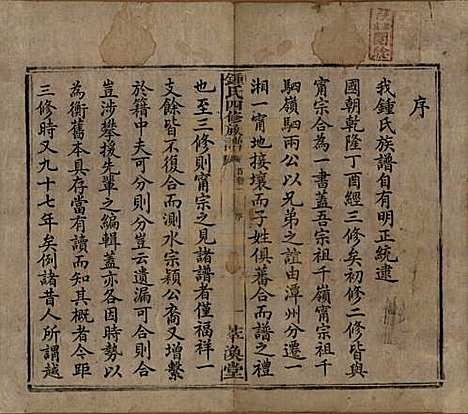 序
我鍾氏族譜自有明正統逮
國朝乾隆丁酉經三修矣初修二修皆與
甯宗合為一書蓋吾宗祖千嶺甯宗祖千
駟嶺駟兩公以兄弟之誼由潭州分遷一
湘一甯地接壤而子姓俱蕃合而譜之禮
鍾氏四修族譜
首卷
序
一
萃渙堂
也至三修則甯宗之見諸譜者僅福祥一
支餘皆不復合而測水宗穎公裔又增繫
於籍中夫可分則分豈云遺漏可合則合
豈涉攀援先輩之編輯蓋亦各因時勢以
為衡舊本具存當有讀而知其概者今距
三修時又九十七年矣例諸昔人所謂越